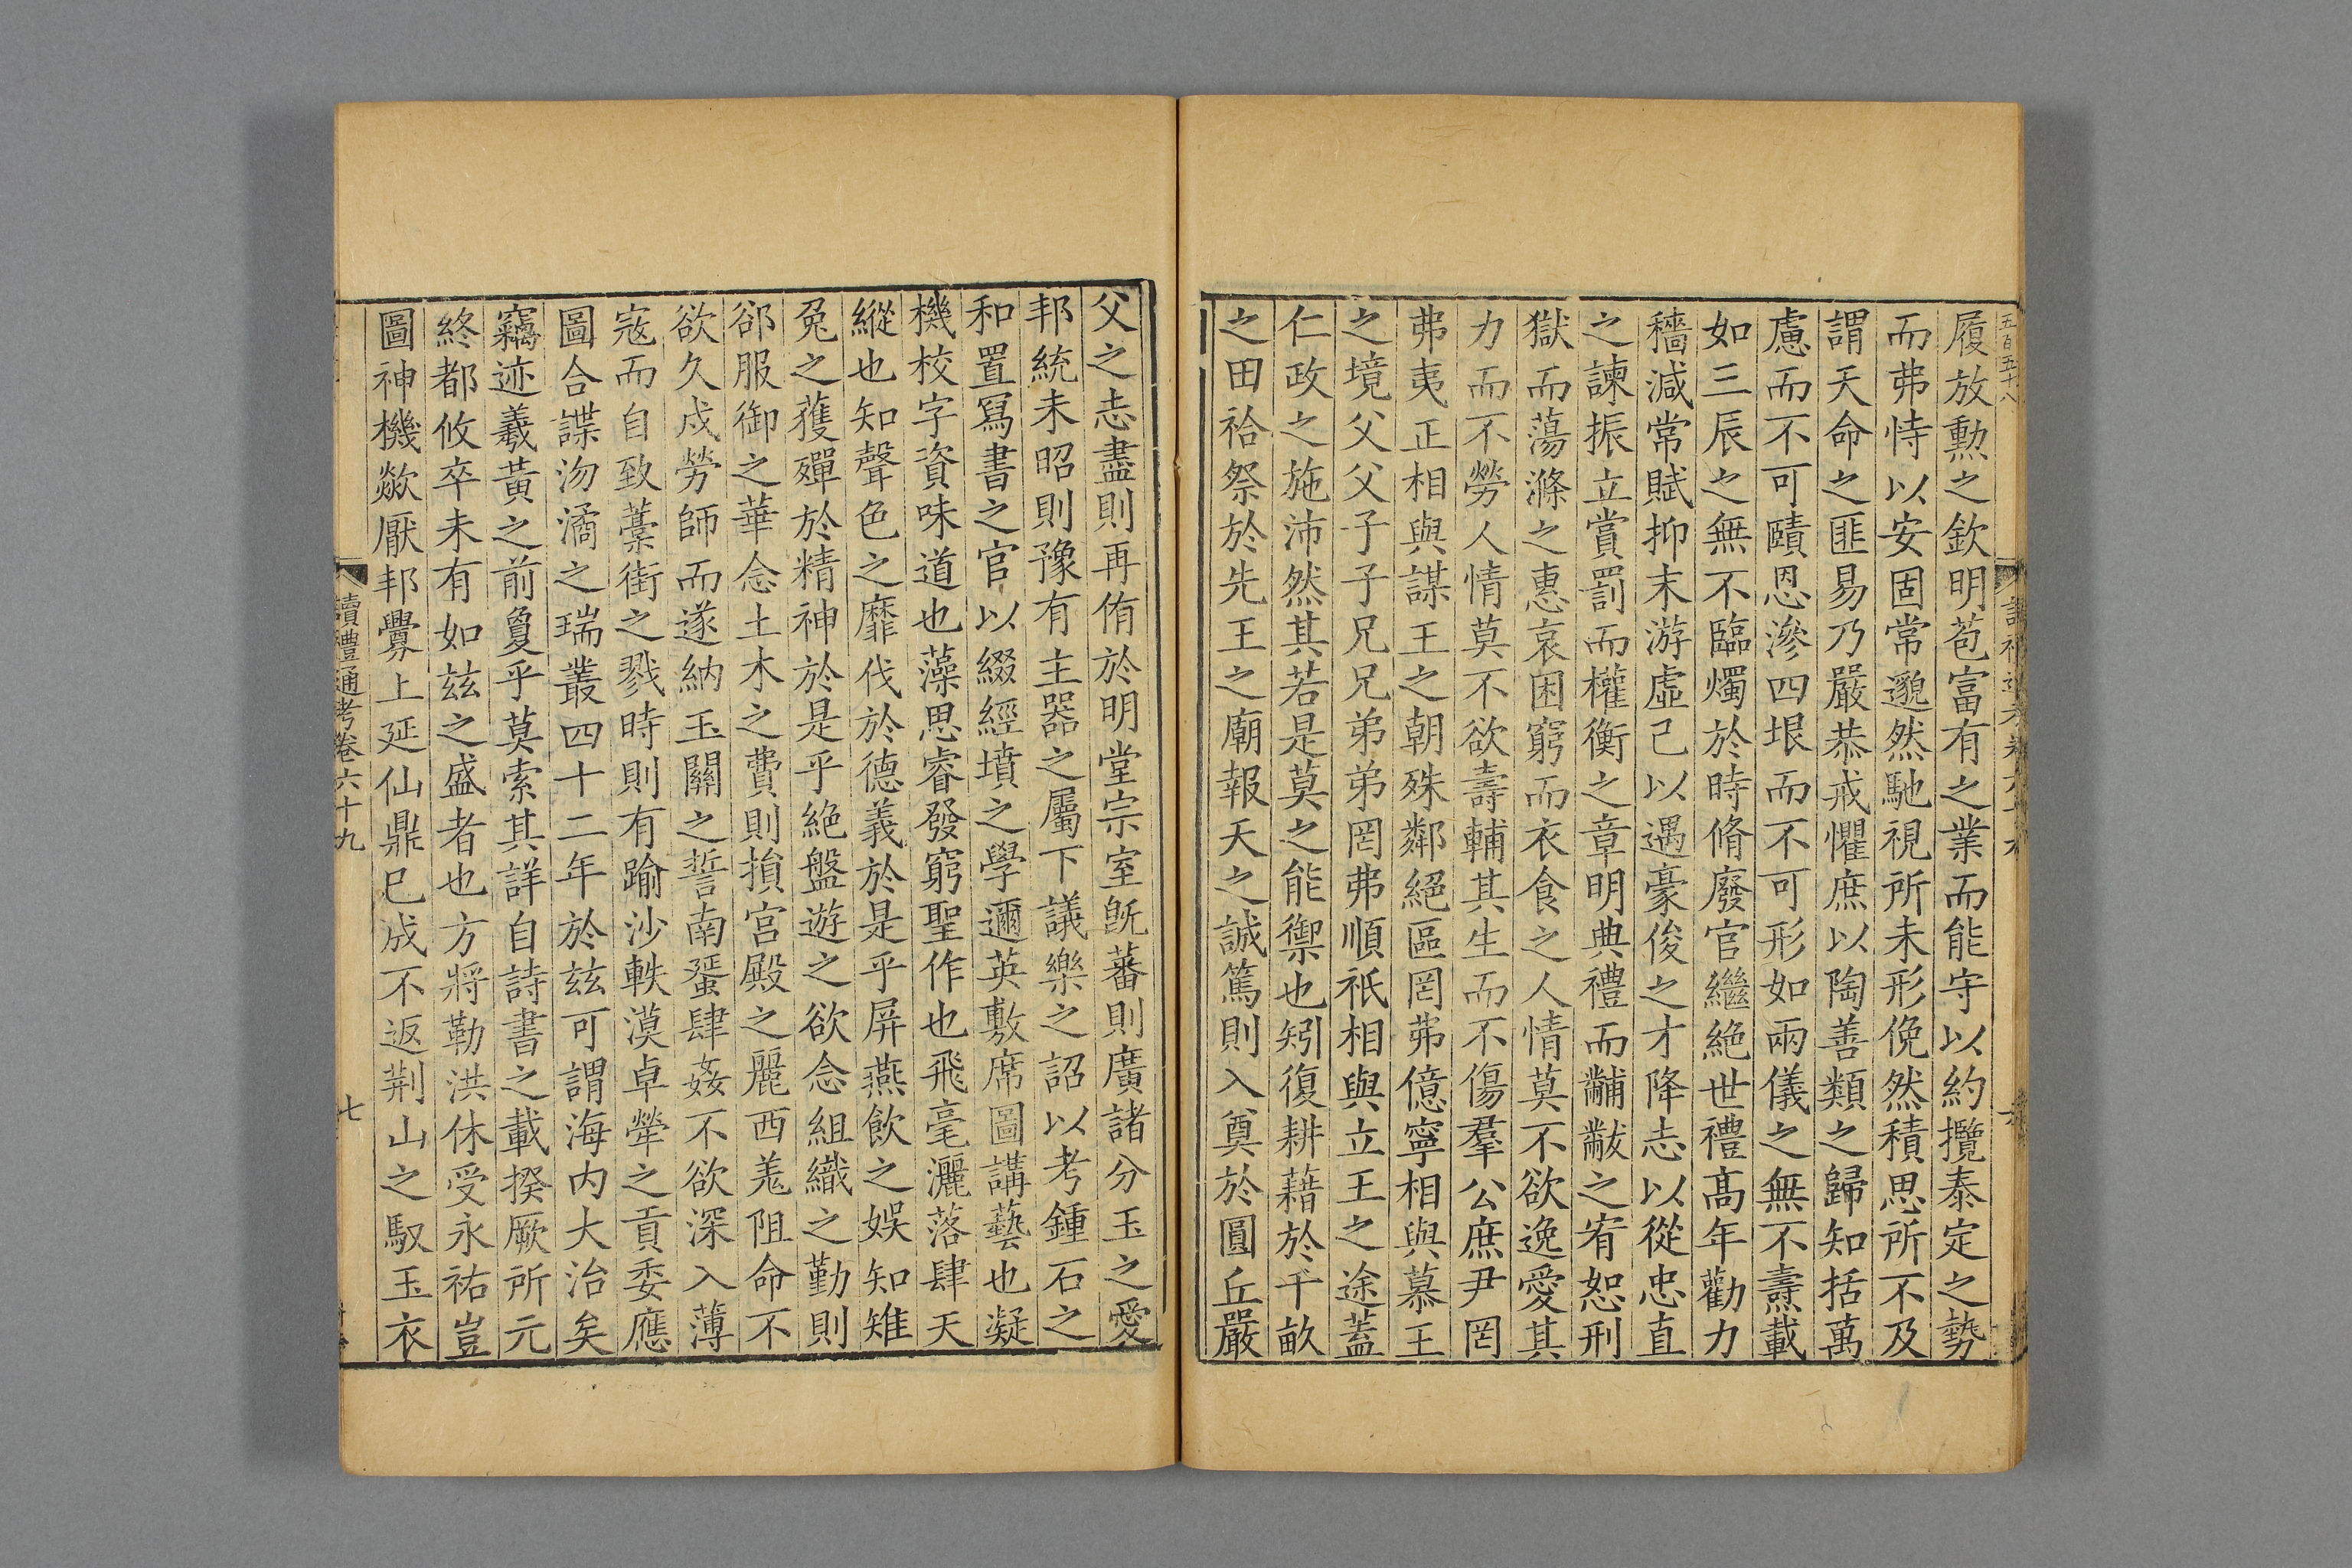 五百五十八
履放勲之欽明苞富有之業而能守以約攬泰定之勢
而弗恃以安固常邈然馳視所未形俛然積思所不及
謂天命之匪易乃嚴恭戒懼庶以陶善類之歸知括萬
慮而不可賾恩滲四垠而不可形如兩儀之無不燾載
如三辰之無不臨燭於時脩廢官繼絶世禮髙年勸力
穡減常賦抑末游虛己以遇豪俊之才降志以從忠直
之諫振立賞罰而權衡之章明典禮而黼黻之宥恕刑
獄而蕩滌之惠哀困窮而衣食之人情莫不欲逸愛其
力而不勞人情莫不欲壽輔其生而不傷羣公庶尹罔
弗夷正相與謀王之朝殊鄰絕區罔弗億寧相與慕王
之境父父子子兄兄弟弟罔弗順祇相與立王之途蓋
仁政之施沛然其若是莫之能禦也矧復耕藉於千畝
之田祫祭於先王之廟報天之誠篤則入奠於圓丘嚴
父之志盡則再侑於明堂宗室旣蕃則廣諸分玉之愛
邦統未昭則豫有主器之屬下議樂之詔以考鍾石之
和置冩書之官以綴經墳之學邇英敷席圖講藝也凝
機校字資味道也藻思睿發窮聖作也飛毫灑落肆天
縱也知聲色之靡伐於德義於是乎屏燕飲之娛知雉
兔之獲殫於精神於是乎絶盤遊之欲念組織之勤則
郤服御之華念土木之費則損宮殿之麗西羌阻命不
欲久戍勞師而遂納玉關之誓南蜑肆姦不欲深入薄
宼而自致藁街之戮時則有踰沙軼漠卓犖之貢委應
圖合諜沕潏之瑞叢四十二年於兹可謂海内大治矣
竊迹羲黃之前敻乎莫索其詳自詩書之載揆厥所元
終都攸卒未有如兹之盛者也方將勒洪休受永祐豈
圖神機歘厭邦釁上延仙鼎已成不返荆山之馭玉衣
讀禮通考卷六十九
七